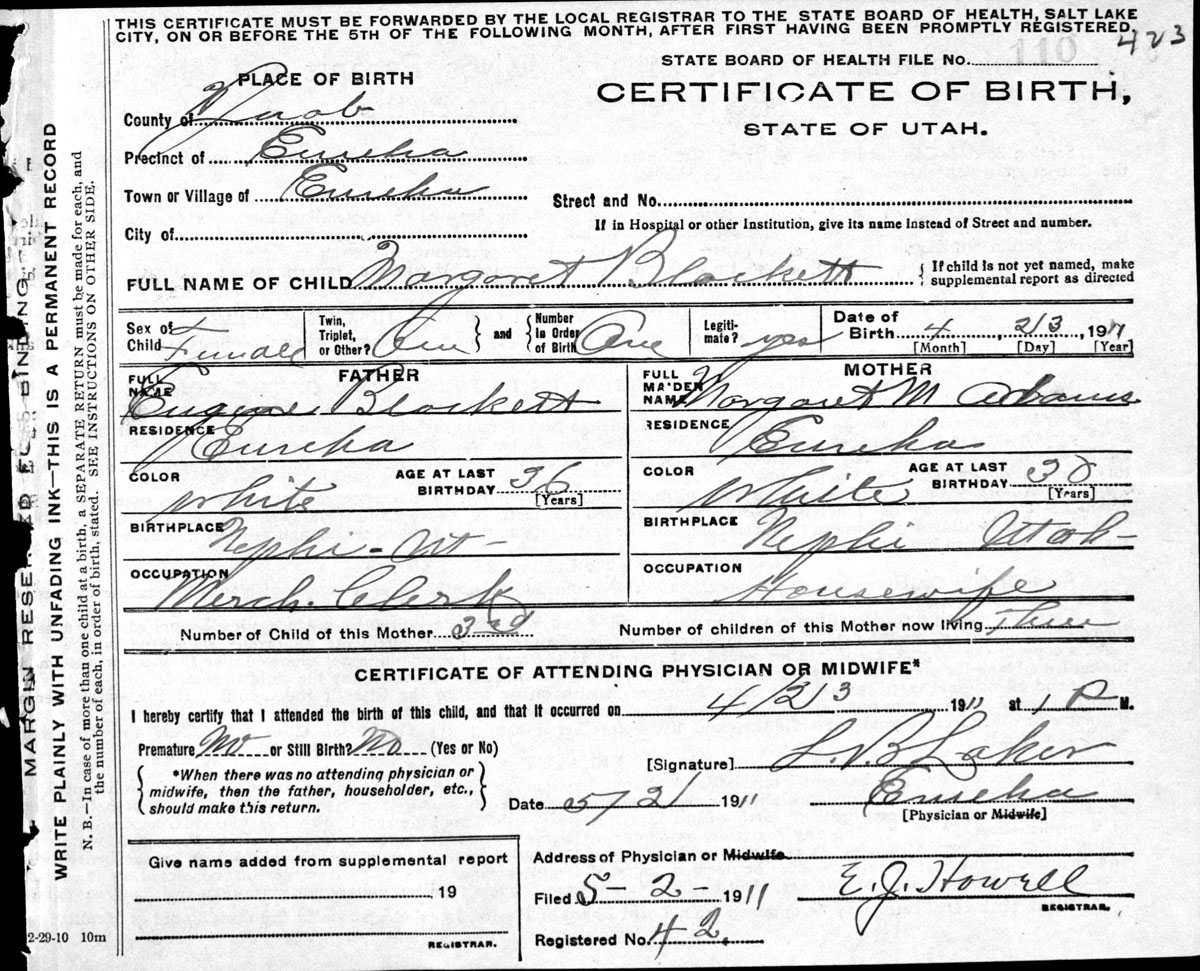 THIS CERTIFICATE MUST BE FORWARDED BY THE LOCAL REGISTRAR TO THE STATE BOARD OF HEALTH, SALT LAKE
CITY, ON OR BEFORE THE 5TH OF THE FOLLOWING MONTH, AFTER FIRST HAVING BEEN PROMPTLY REGISTERED.
423
STATE BOARD OF HEALTH FILE No. 110
PLACE OF BIRTH
CERTIFICATE OF BIRTH,
STATE OF UTAH.
County of Juab
Precinct of Eureka
Town or Village of Eureka
Street and No.
City of
If in Hospital or other Institution, give its name instead of Street and number.
FULL NAME OF CHILD Margaret Blackett
If child is not yet named, make
supplemental report as directed
Sex of Child F Female
Twin, Triplet, or Other? One
and
Number in Order of Birth One
Legiti-mate? yes
Date of Birth 4, 23, 1911
[Month] [Day] [Year]
FATHER
FULL NAME
Eugene Blackett
RESIDENCE
Eureka
COLOR
White
AGE AT LAST BIRTHDAY 36
[Years]
BIRTHPLACE
Nephi - Ut -
OCCUPATION
Merch. Clerk
MOTHER
FULL MAIDEN NAME Margaret M Adams
RESIDENCE
Eureka
COLOR
White
AGE AT LAST BIRTHDAY
[Years]
BIRTHPLACE
Nephi Utah -
OCCUPATION
Housewife
Number of Child of this Mother 3rd
Number of children of this Mother now living Three
CERTIFICATE OF ATTENDING PHYSICIAN OR MIDWIFE*
I hereby certify that I attended the birth of this child, and that it occurred on 4/23 1911 at 1 P M.
Premature No or Still Birth? No (Yes or No)
*When there was no attending physician or
midwife, then the father, householder, etc.,
should make this return.
[Signature] L.B. Laker
Date 5/2/ 1911
Eureka
[Physician or Midwife]
Give name added from supplemental report
19
REGISTRAR.
Address of Physician or Midwife
Filed 5-2- 1911
E. J. Howell
REGISTRAR.
Registered No. 42
MARGIN RESE ED FOR BINDING
WRITE PLAINLY WITH UNFADING INK—THIS IS A PERMANENT RECORD
N. B.—In case of more than one child at a birth, a SEPARATE RETURN must be made for each, and
the number of each, in order of birth, stated. SEE INSTRUCTIONS ON OTHER SIDE.
2-29-10 10m